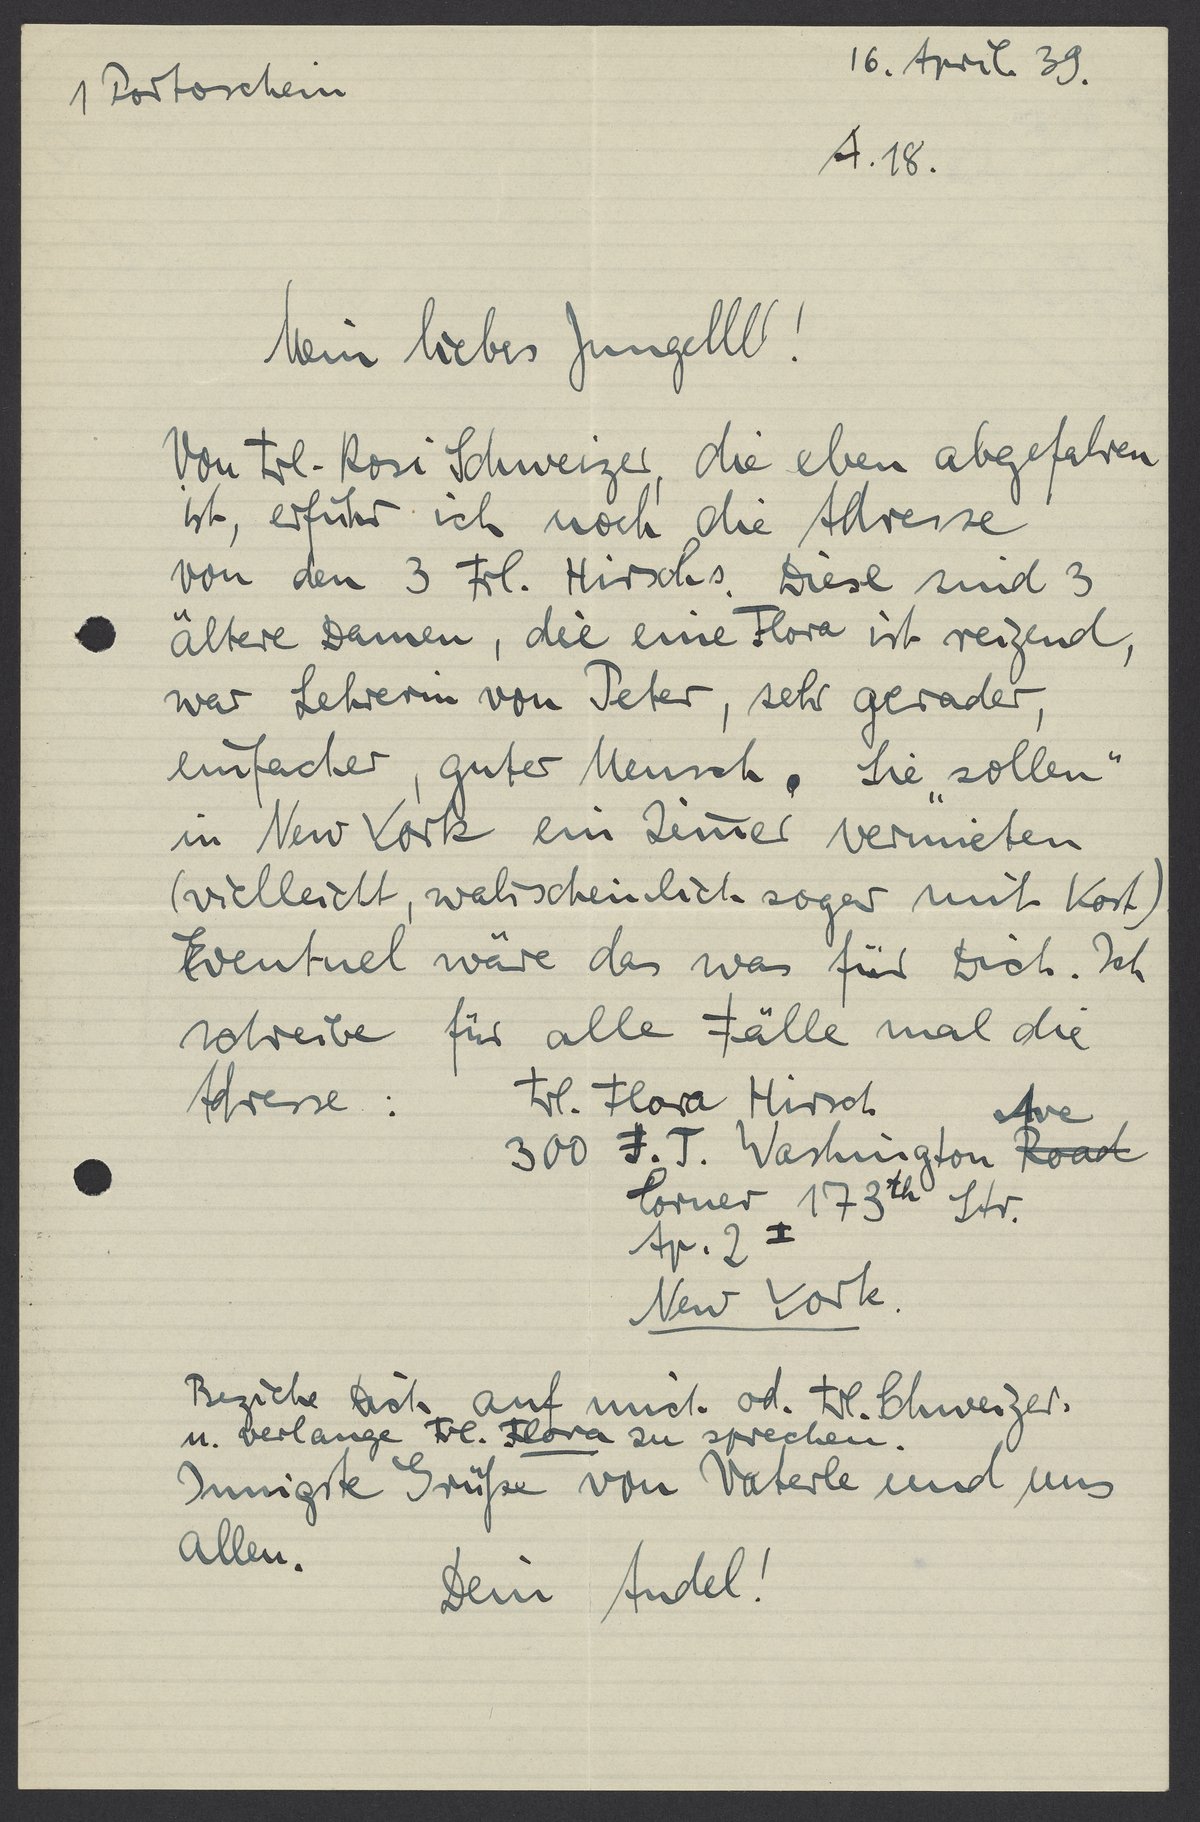 1 Portoschein
16. April 39.
A. 18.
Mein liebes Jungelll!
Von Frl. Rosi Schweizer, die eben abgefahren
ist, erfuhr ich noch die Adresse
von den 3 Frl. Hirschs. Diese sind 3
ältere Damen, die eine Flora ist reizend,
war Lehrerin von Peter, sehr gerader,
einfacher, guter Mensch. Sie „sollen“
in New York ein Zim̄er vermieten
(vielleicht, wahrscheinlich sogar mit Kost)
Eventuel wäre das was für Dich. Ich
schreibe für alle Fälle mal die
Adresse : Frl. Flora Hirsch
300 F. T. Washington Road Ave
Corner 173th Str.
Ap. 2 I
New York.
Beziehe Dich auf mich od. Frl. Schweizer.
u. verlange Frl. Flora zu sprechen.
Innigste Grüße von Vaterle und uns
allen.
Dein Andel!